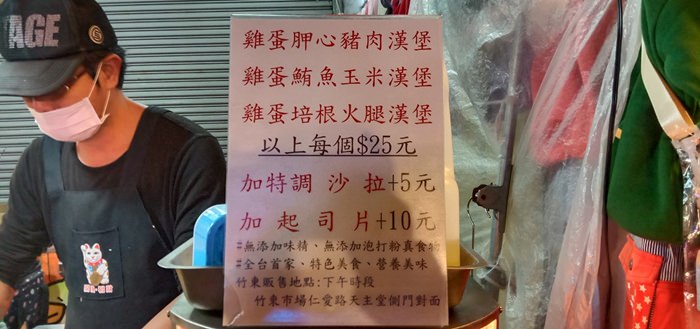 AGE
雞蛋胛心豬肉漢堡
雞蛋鮪魚玉米漢堡
雞蛋培根火腿漢堡
以上每個$25元
加特調 沙 拉+5元
加 起 司 片+10元
#無添加味精、無添加泡打粉真食物
#全台首家、特色美食、營養美味
竹東販售地點:下午時段
竹東市場仁愛路天主堂側門對面